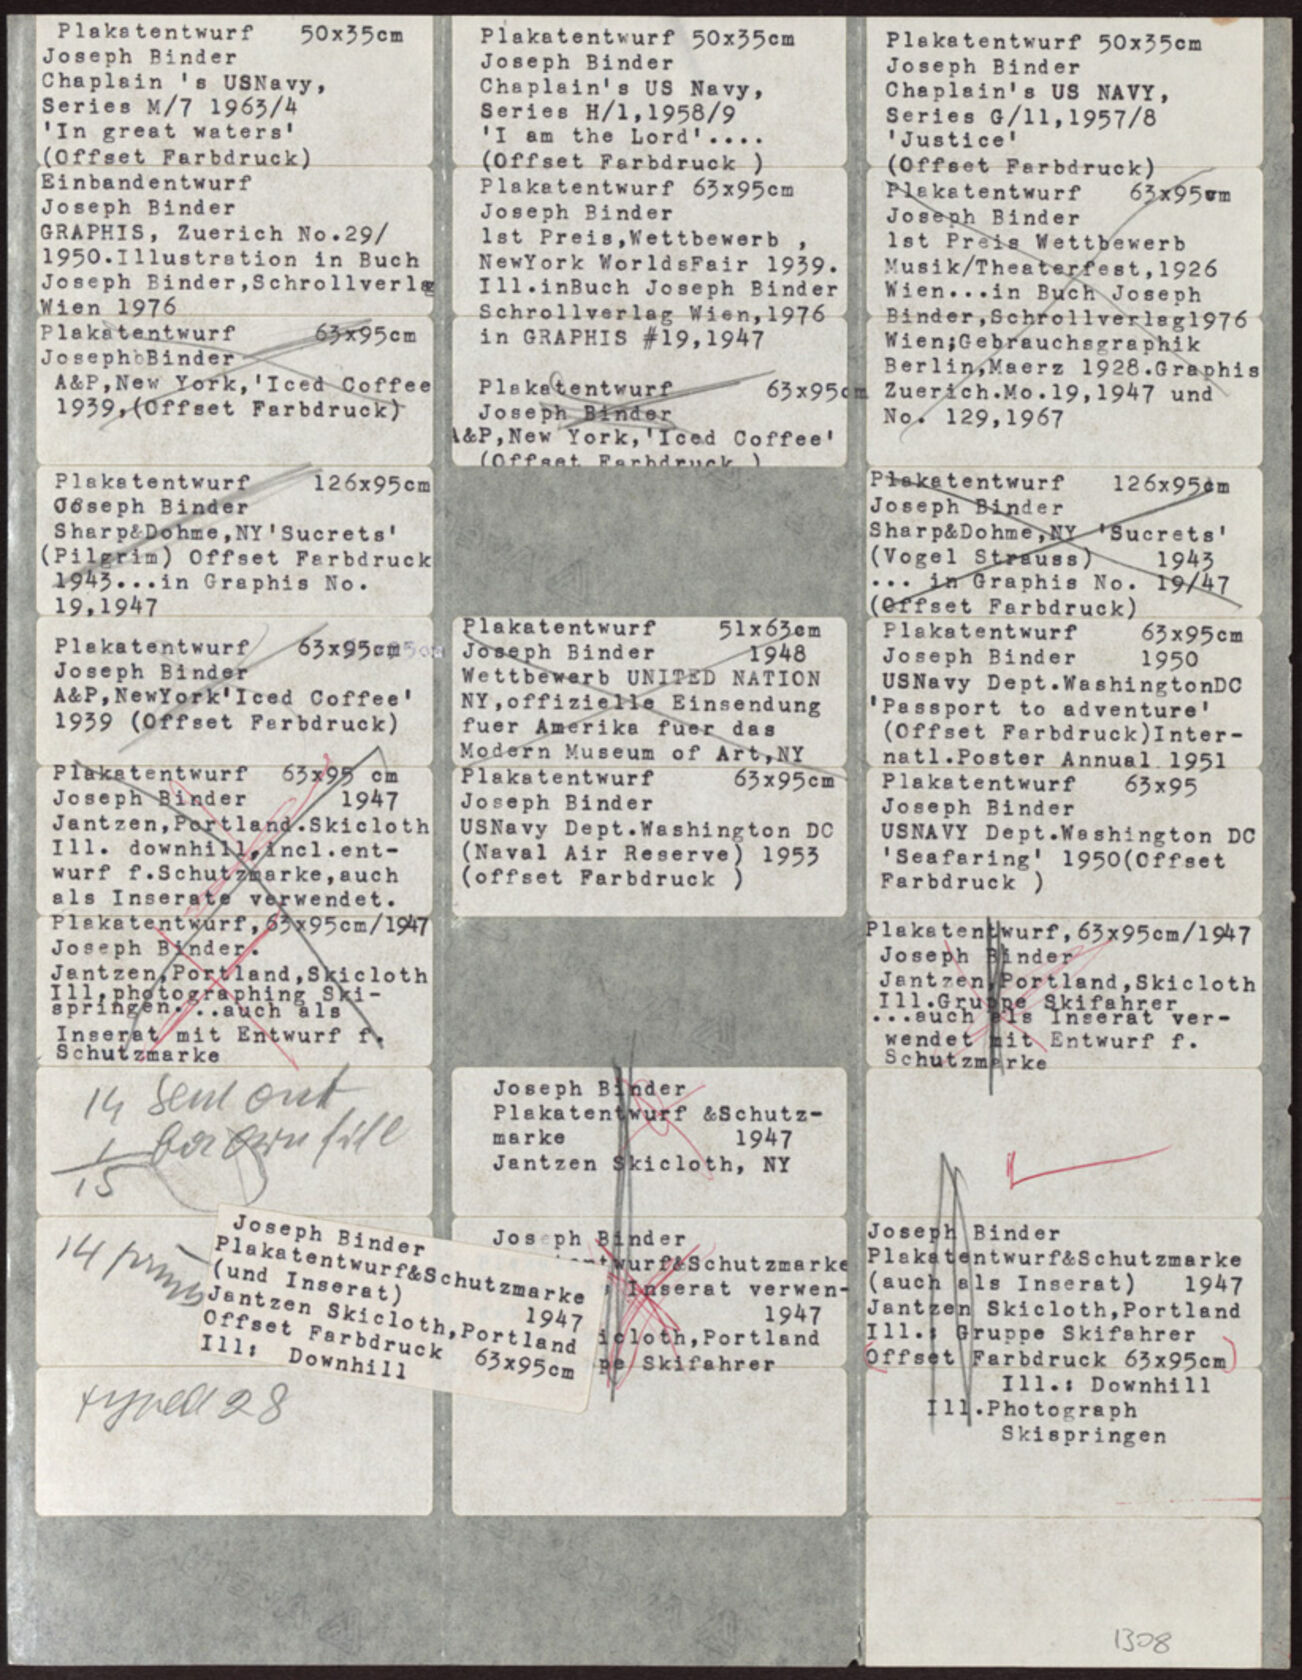 Plakatentwurf 50x35cm
Joseph Binder
Chaplain 's USNavy,
Series M/7 1963/4
'In great waters'
(Offset Farbdruck)
Einbandentwurf
Joseph Binder
GRAPHIS, Zuerich No.29/
1950.Illustration in Buch
Joseph Binder,Schrollverlg
Wien 1976
Plakatentwurf 63x95cm
Joseph Binder
A&P,New York,'Iced Coffee
1939,(Offset Farbdruck)
Plakatentwurf 126x95cm
Joseph Binder
Sharp&Dohme,NY'Sucrets'
(Pilgrim) Offset Farbdruck
1943...in Graphis No.
19,1947
Plakatentwurf 63x95cm
Joseph Binder
A&P,NewYork'Iced Coffee'
1939 (Offset Farbdruck)
Plakatentwurf 63x95 cm
Joseph Binder 1947
Jantzen,Portland.Skicloth
Ill. downhill,incl.ent-
wurf f.Schutzmarke,auch
als Inserate verwendet.
Plakatentwurf,63x95cm/1947
Joseph Binder.
Jantzen,Portland,Skicloth
Ill.photographing Ski-
springen...auch als
Inserat mit Entwurf f.
Schutzmarke
14 sent out
1
15
14
typed 28
Joseph Binder
Plakatentwurf&Schutzmarke
(und Inserat) 1947
Jantzen Skicloth,Portland
Offset Farbdruck 63x95cm
Ill: Downhill
Plakatentwurf 50x35cm
Joseph Binder
Chaplain's US Navy,
Series H/1,1958/9
'I am the Lord'....
(Offset Farbdruck )
Plakatentwurf 63x95cm
Joseph Binder
1st Preis,Wettbewerb ,
NewYork WorldsFair 1939.
Ill.inBuch Joseph Binder
Schrollverlag Wien,1976
in GRAPHIS #19,1947
Plakatentwurf 63x95cm
Joseph Binder
A&P,New York,'Iced Coffee'
(Offset Farbdruck )
Plakatentwurf 51x63cm
Joseph Binder 1948
Wettbewerb UNITED NATION
NY,offizielle Einsendung
fuer Amerika fuer das
Modern Museum of Art,NY
Plakatentwurf 63x95cm
Joseph Binder
USNavy Dept.Washington DC
(Naval Air Reserve) 1953
(offset Farbdruck )
Joseph Binder
Plakatentwurf &Schutz-
marke 1947
Jantzen Skicloth, NY
Joseph Binder
twurf&Schutzmarke
Inserat verwen-
1947
icloth,Portland
pe Skifahrer
Plakatentwurf 50x35cm
Joseph Binder
Chaplain's US NAVY,
Series G/11,1957/8
'Justice'
(Offset Farbdruck)
Plakatentwurf 63x95cm
Joseph Binder
1st Preis Wettbewerb
Musik/Theaterfest,1926
Wien...in Buch Joseph
Binder,Schrollverlag1976
Wien;Gebrauchsgraphik
Berlin,Maerz 1928.Graphis
Zuerich.Mo.19,1947 und
No. 129,1967
Plakatentwurf 126x95cm
Joseph Binder
Sharp&Dohme,NY 'Sucrets'
(Vogel Strauss) 1943
... in Graphis No. 19/47
(Offset Farbdruck)
Plakatentwurf 63x95cm
Joseph Binder 1950
USNavy Dept.WashingtonDC
'Passport to adventure'
(Offset Farbdruck)Inter-
natl.Poster Annual 1951
Plakatentwurf 63x95
Joseph Binder
USNAVY Dept.Washington DC
'Seafaring' 1950(Offset
Farbdruck )
Plakatentwurf,63x95cm/1947
Joseph Binder
Jantzen,Portland,Skicloth
Ill.Gruppe Skifahrer
...auch als Inserat ver-
wendet mit Entwurf f.
Schutzmarke
Joseph Binder
Plakatentwurf&Schutzmarke
(auch als Inserat) 1947
Jantzen Skicloth,Portland
Ill.: Gruppe Skifahrer
(Offset Farbdruck 63x95cm)
Ill.: Downhill
Ill.Photograph
Skispringen
1308